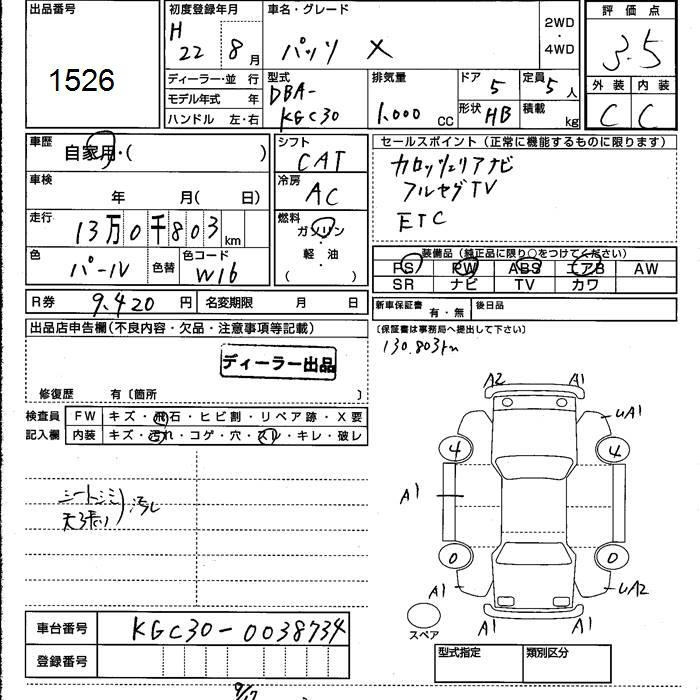 出品番号
1526
初度登録年月
H
22 8月
車名・グレード
パッソ X
2WD
・
4WD
評価点
3.5
外装 内装
C C
ディーラー・並 行
モデル年式 年
ハンドル 左・右
型式
DBA-
KGC30
排気量
1,000 cc
ドア 5
定員 5人
形状 HB
積載 kg
車歴
自家用・( )
車検
年 月( 日)
走行
13万0千803km
色
パール
色替
色コード
W16
シフト
CAT
冷房
AC
燃料
ガソリン
・
軽・油
( )
セールスポイント (正常に機能するものに限ります)
カロッツェリアナビ
フルセグTV
ETC
装備品 (純正品に限り○をつけてください)
PS PW ABS エアB AW
SR ナビ TV カワ
R券 9,420 円
名変期限 月 日
新車保証書 有・無
後日品
(保証書は事務局へ提出して下さい)
130.803km
出品店申告欄(不良内容・欠品・注意事項等記載)
ディーラー出品
修復歴 有〔箇所 〕
検査員
記入欄
FW キズ・飛石・ヒビ割・リペア跡・X要
内装 キズ・汚れ・コゲ・穴・スレ・キレ・破レ
シートシミ
天張り)汚レ
A2 A1
UA1
4 4
A1 A1
0 0
A1 UA2
A1 A1
スペア
車台番号 KGC30-0038734
登録番号
型式指定 類別区分